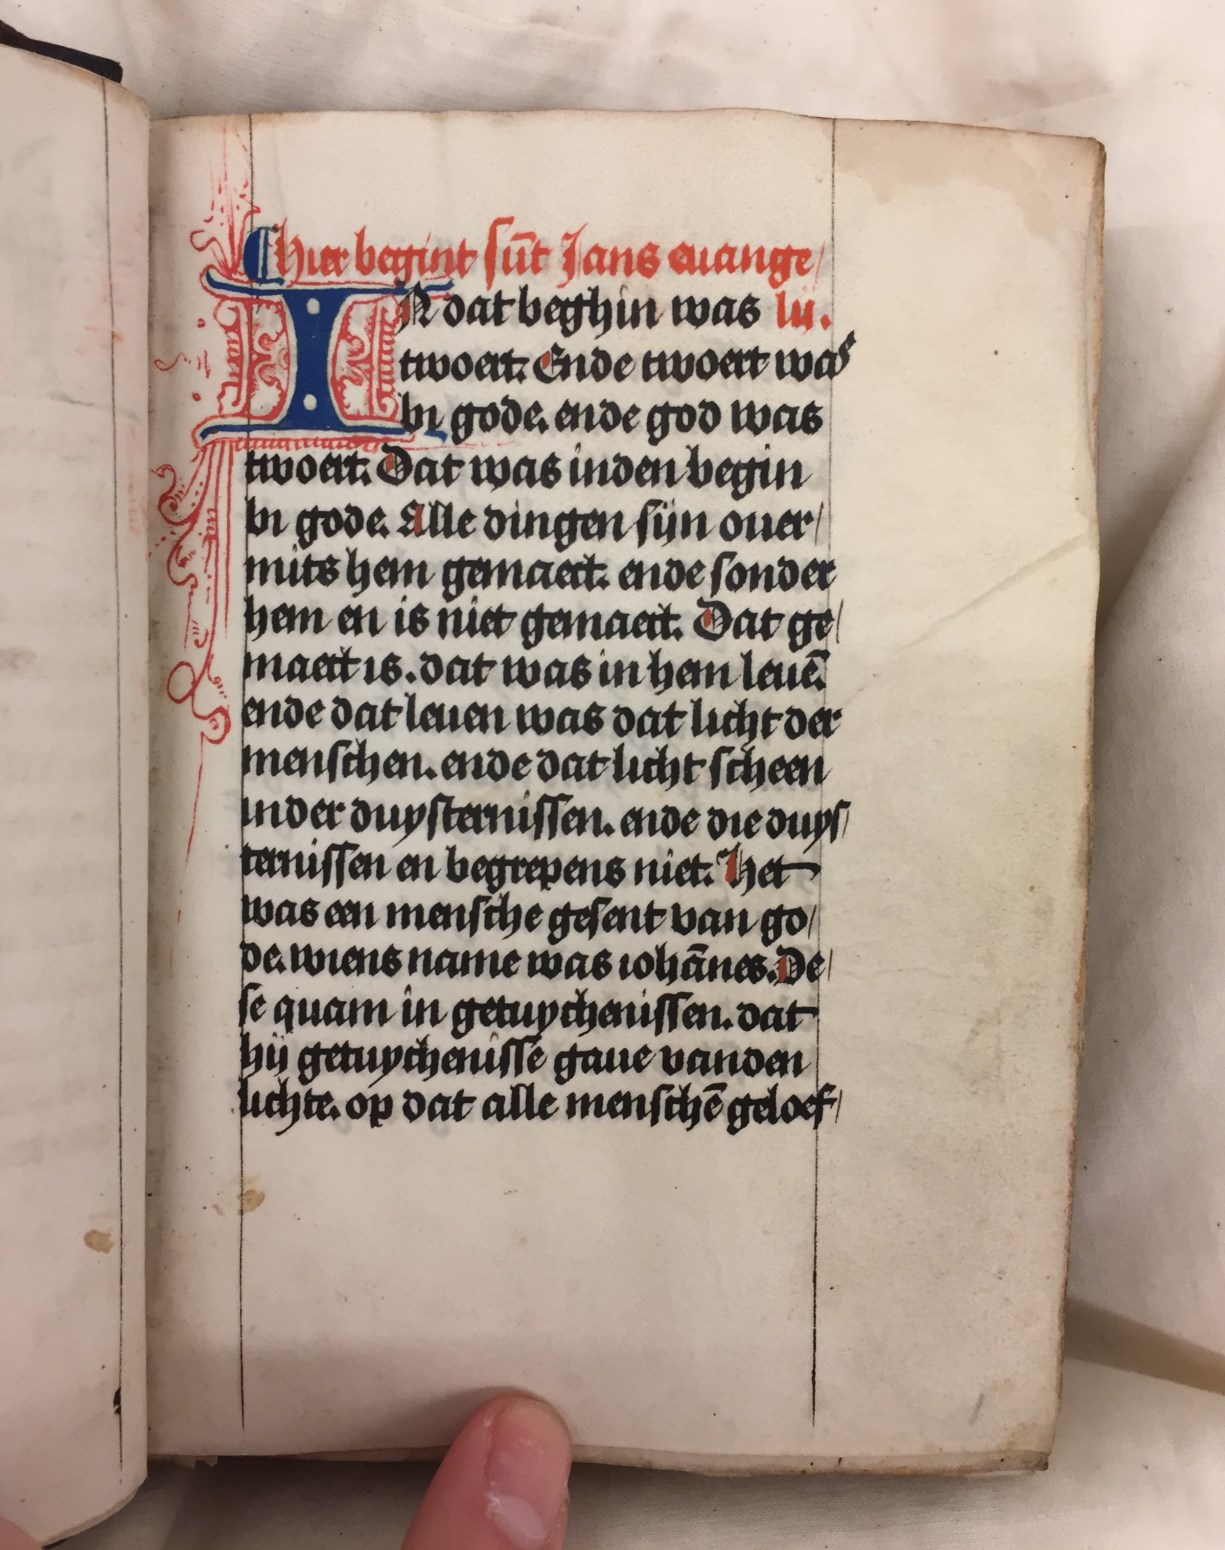 hier begint sūt Jans euange/
IN dat beghin was lij.
twoert. Ende twoert was
bi gode. ende god was
twoert. Dat was inden begin
bi gode. Alle dingen sijn ouer/
mits hem gemaect. ende sonder
hem en is niet gemaect. Dat ge/
maect is. dat was in hem leuē.
ende dat leuen was dat licht der
menschen. ende dat licht scheen
inder duysternissen. ende die duys/
ternissen en begrepens niet. Het
was een mensche gesent van go/
de. wiens name was iohānes. De/
se quam in getuychenissen. dat
hij getuychenisse gaue vanden
lichte. op dat alle menschē geloef/